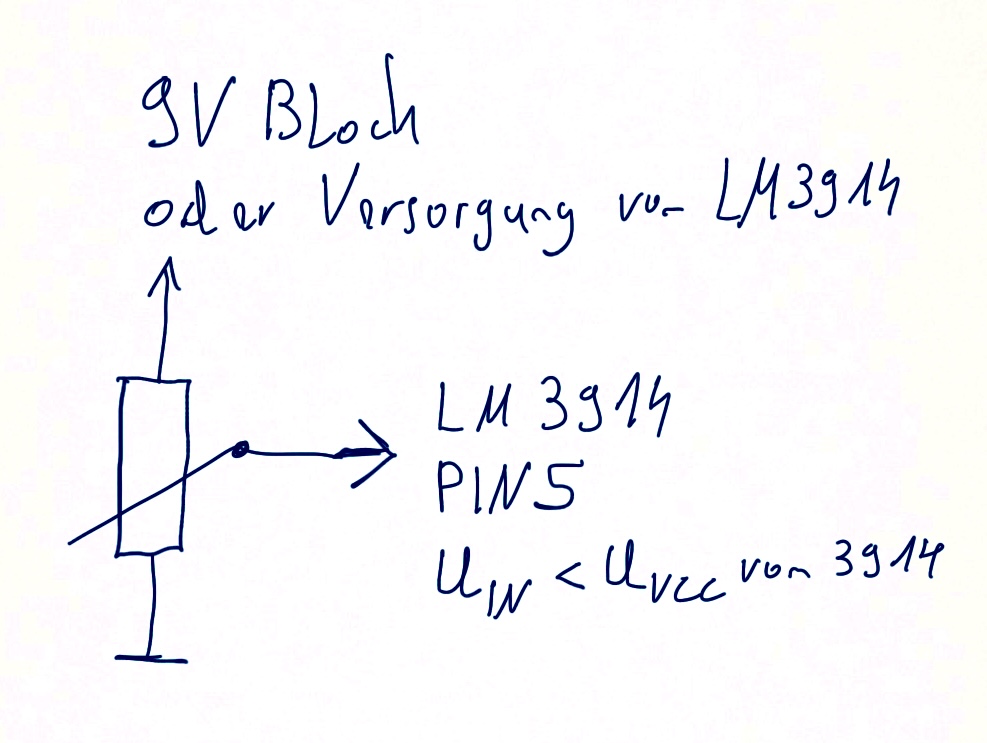 9V BLock
oder Versorgung von LM3914
LM 3914
PIN5
U_IN < U_VCC von 3914